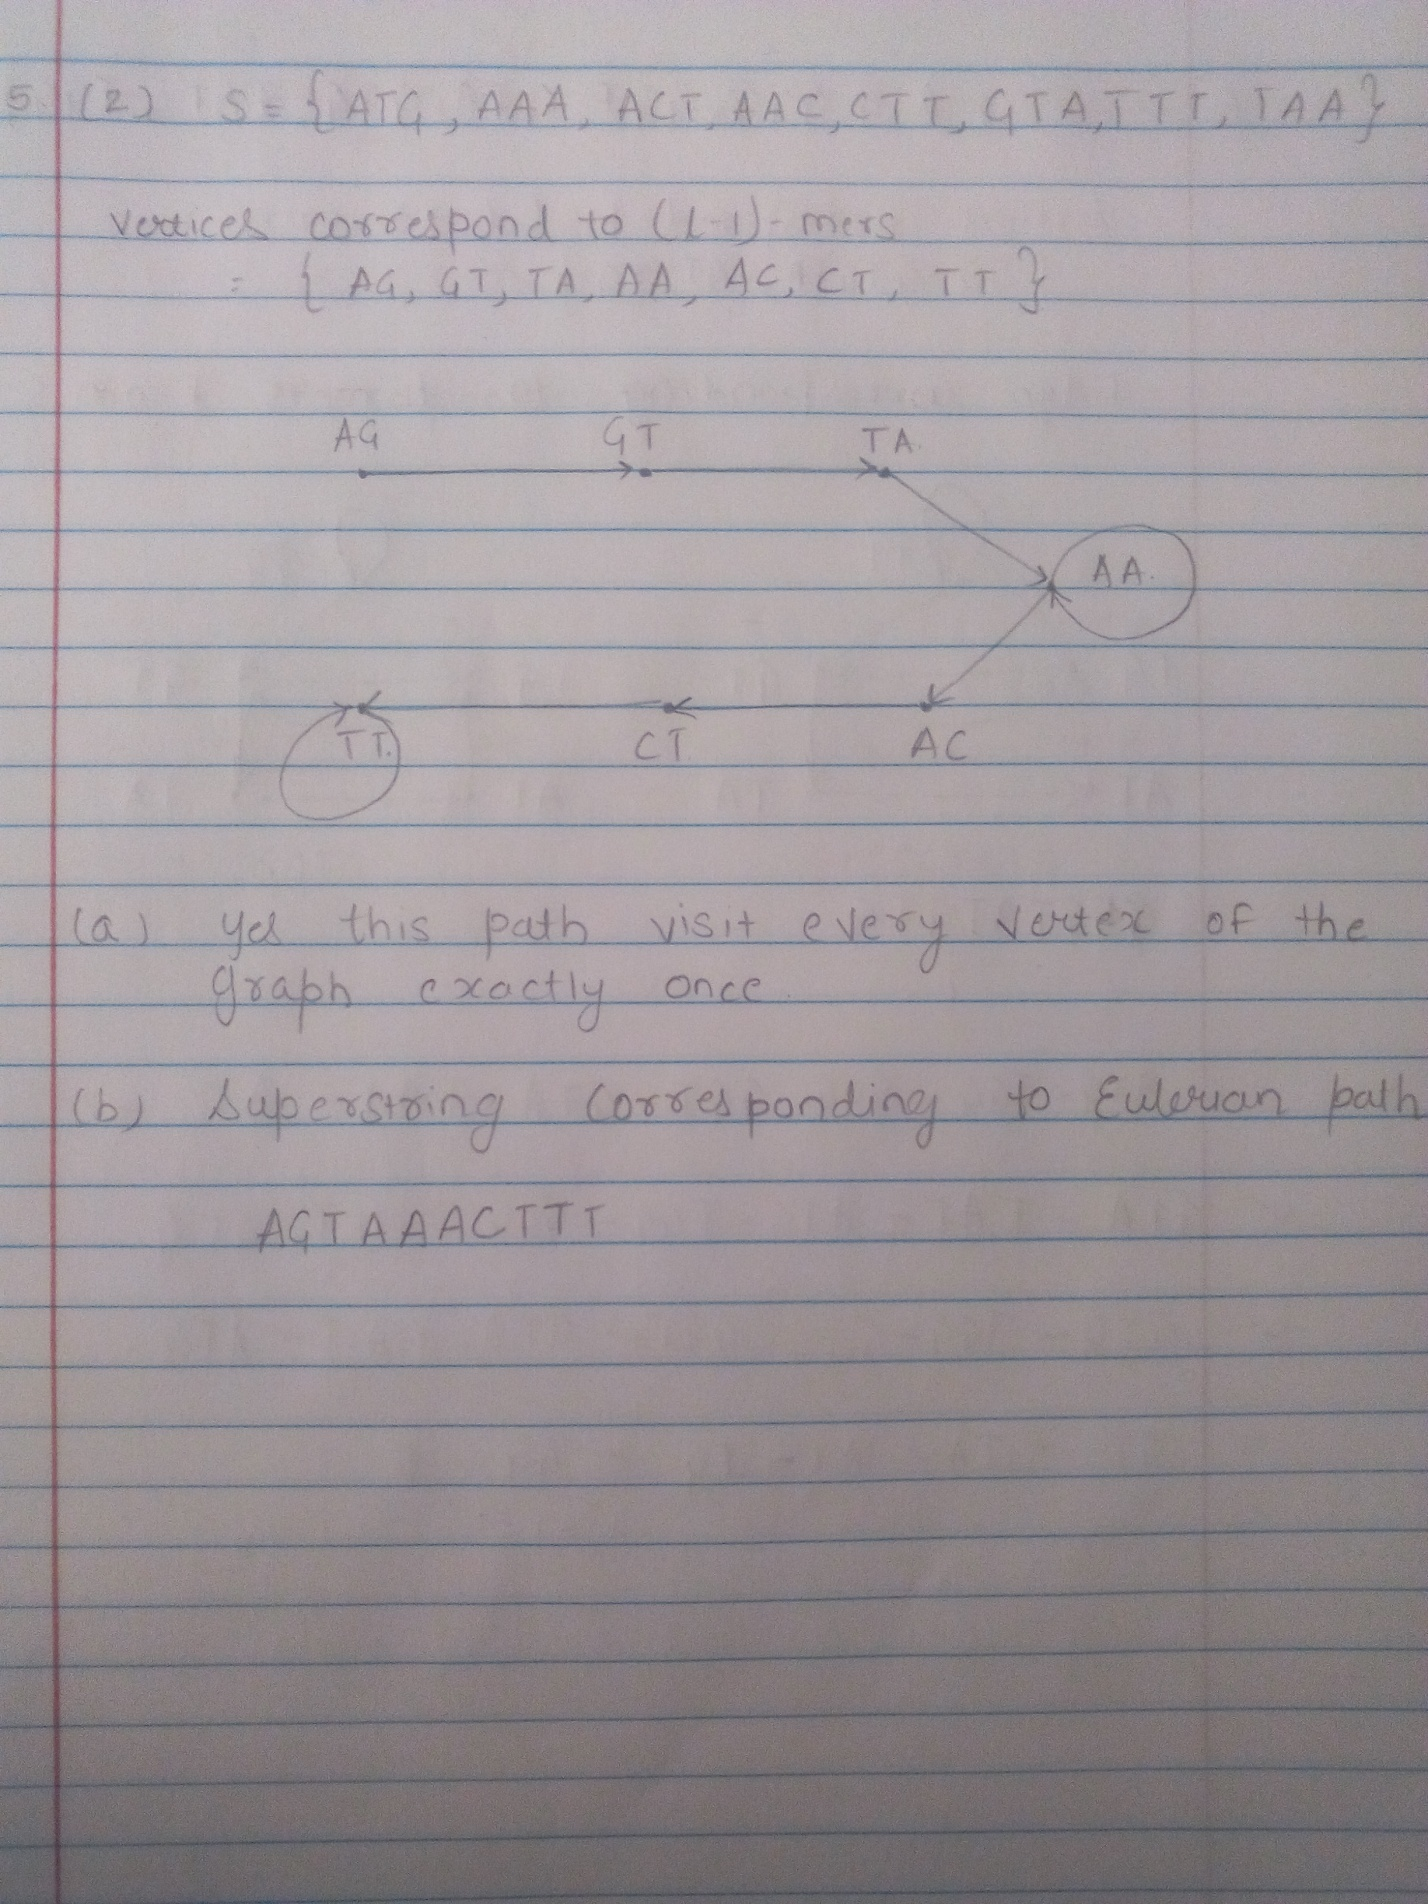 5. (2) S = { ATG, AAA, ACT, AAC, CTT, GTA, TTT, TAA }
vertices correspond to (l-1)-mers
= { AG, GT, TA, AA, AC, CT, TT }
AG GT TA.
AA.
TT. CT. AC
(a) yes this path visit every vertex of the
graph exactly once.
(b) Superstring corresponding to Eulerian path
AGTAAACTTT